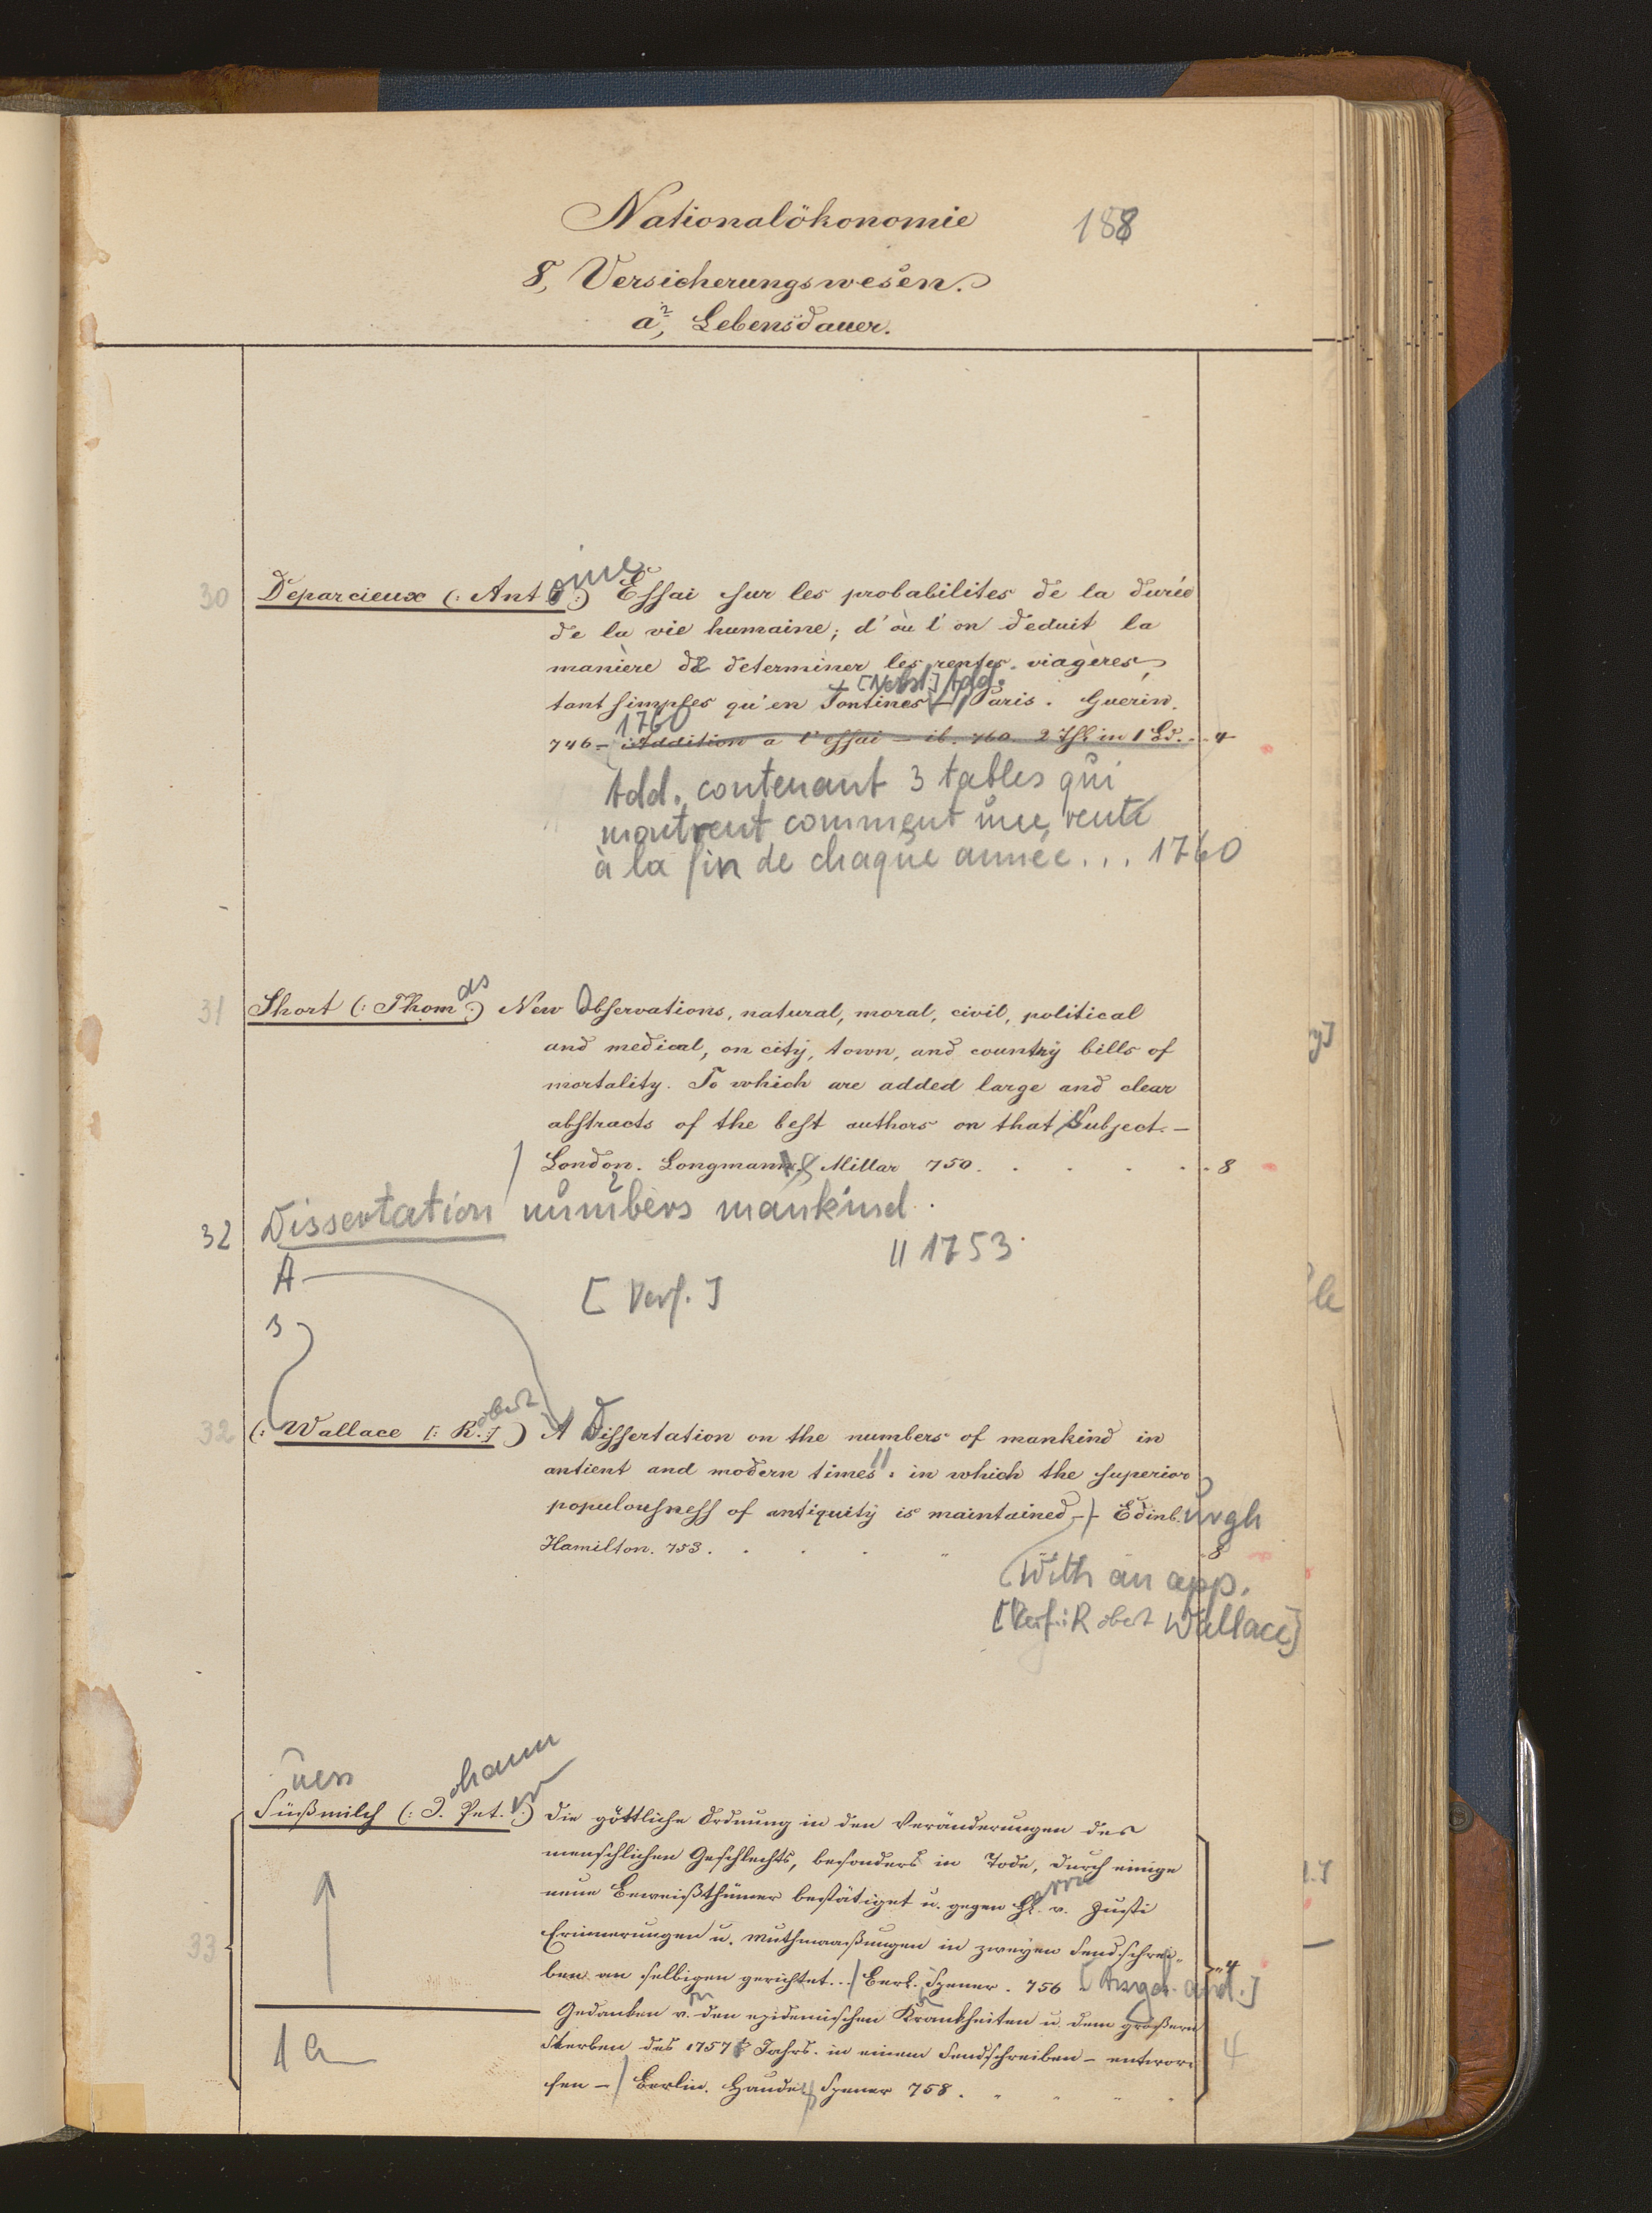 Nationalökonomie 188
8, Versicherungswesen.
a², Lebensdauer.
30 Deparcieux (: Antoine:) Essai sur les probabilites de la durée
de la vie humaine; d'où l'on deduit la
manière de determiner les rentes viagères,
+ [Nebst] Add.
tant simples qu'en Tontines — Paris. Guerin.
1760
746 — Addition a l'essai — ib. 760. 2 Thl in 1 Bd. . . 4
Add. contenant 3 tables qui
montrent comment une rente
à la fin de chaque année... 1760
31 Short (: Thomas:) New Observations, natural, moral, civil, political
and medical, on city, town, and country bills of
mortality. To which are added large and clear
abstracts of the best authors on that Subject. —
London. Longman & Millar 750. . . . . . 8
32 Dissertation numbers mankind
2
A
" 1753
[Verf.]
B
32 (: Wallace [: Robert :]) A Dissertation on the numbers of mankind in
antient and modern times": in which the superior
populousness of antiquity is maintained — Edinburgh
Hamilton. 753. . . . " 8
With an app.
[Verf.: Robert Wallace]
uess
Süßmilch (: Johann Peter:) Die göttliche Ordnung in den Veränderungen des
menschlichen Geschlechts, besonders in Tode, durch einige
neue Beweißthümer bestätiget u. gegen Herrn v. Justi
33 Erinnerungen u. Muthmaaßungen in zweyen Sendschrei-
ben an selbigen gerichtet... Berl. Spener. 756 [Ausgab. and.] 4
Gedanken v. den epidemischen Krankheiten u. dem größern
1a Sterben des 1757 Jahrs. in einem Sendschreiben — entwor- 4
fen — Berlin. Haude & Spener 758. "